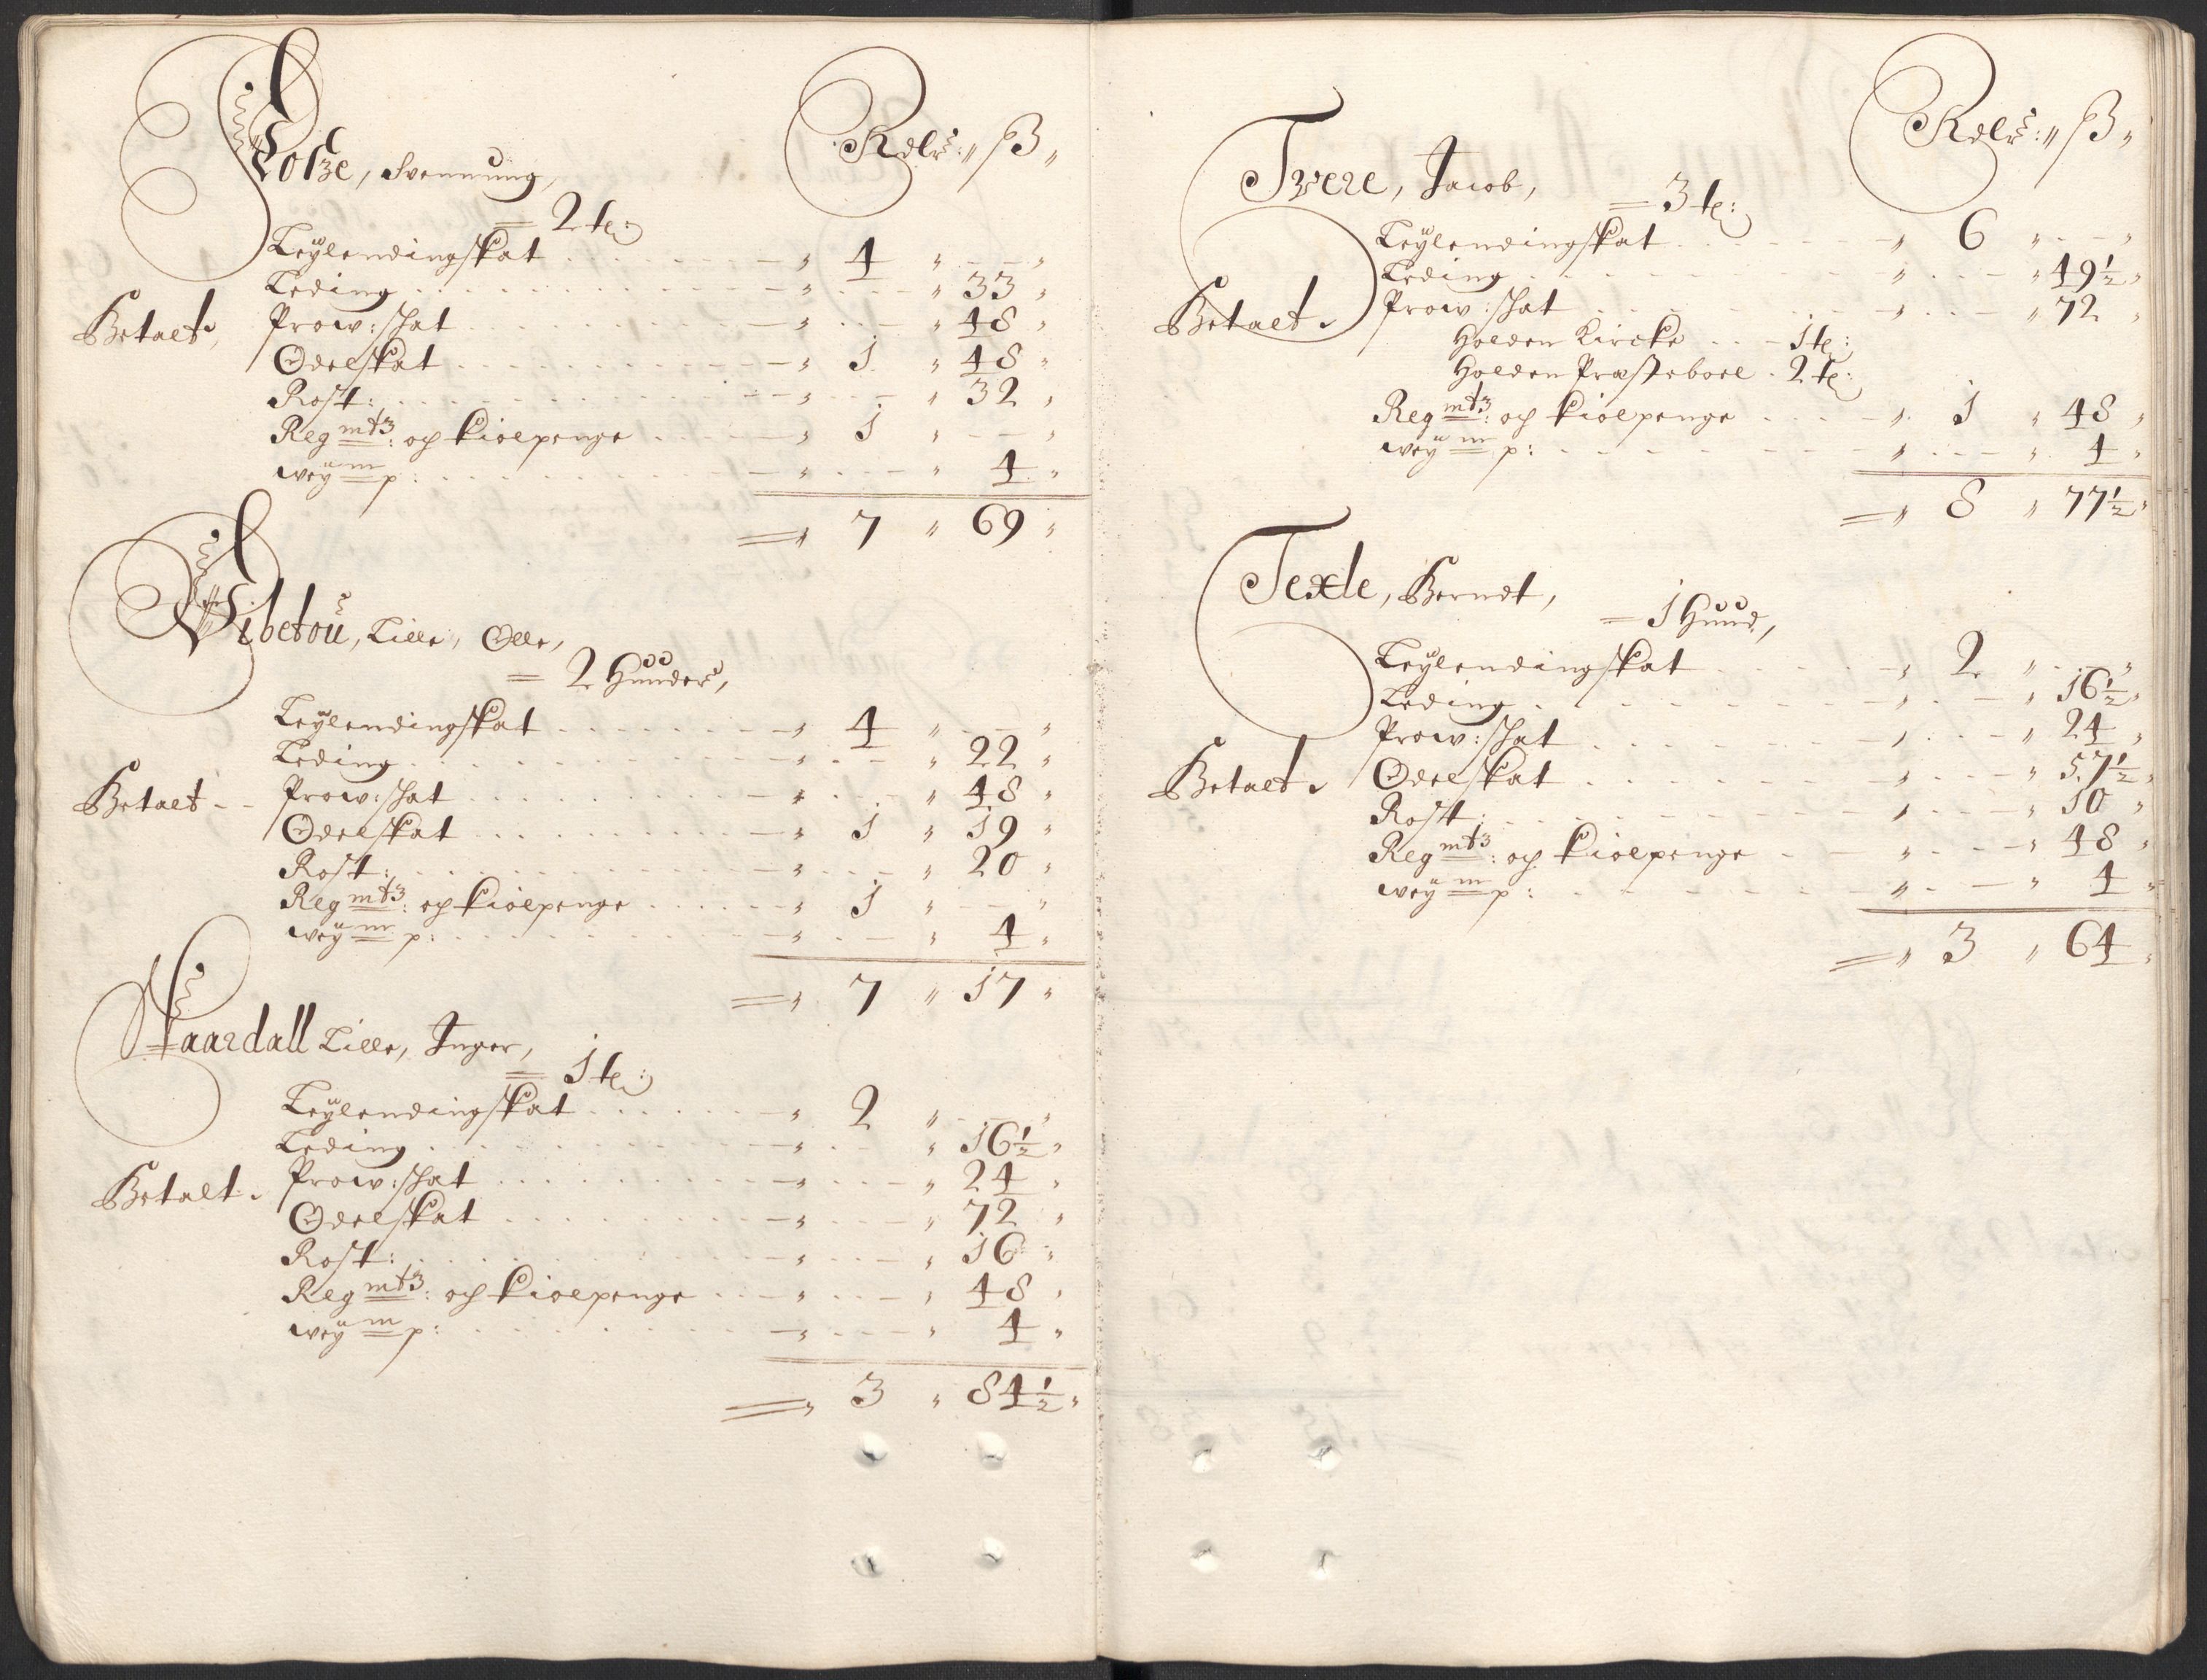 Rdlr: ß
Folße, Svennung,
= 2 te:
Leylendingskat 4
Leding 33
Betalt, Prow: skat 48
Odelskat 1 48
Rost: 32
Reg mtz: og kioepenge 1
weÿ m p: 4
= 7 69
Vibetoü, Lille, Olle,
= 2 Huuder,
Leylendingskat 4
Leding 22
Betalt Prow: skat 48
Odelskat 1 19
Rost: 20
Reg mtz: og kioepenge 1
weÿ m p: 4
= 7 17
Haardall Lille, Inger,
= 1 te:
Leylendingskat 2
Leding 16½
Betalt. Prow: skat 24
Odelskat 72
Rost: 16
Reg mtz: og kioepenge 48
weÿ m p: 4
= 3 84½
Rdlr: ß
Tvere, Jacob,
= 3 te:
Leylendingskat 6
Leding 49½
Betalt. Prow: skat 72
Holden Kircke 1 te:
Holden Præsteboel 2 te:
Reg mtz: og kioepenge 1 48
weÿ m p: 4
= 8 77½
Texle, Berndt,
= 1 Huud,
Leylendingskat 2
Leding 16½
Prow: skat 24
Betalt. Odelskat 57½
Rost: 10
Reg mtz: og kioepenge 48
weÿ m p: 4
= 3 64